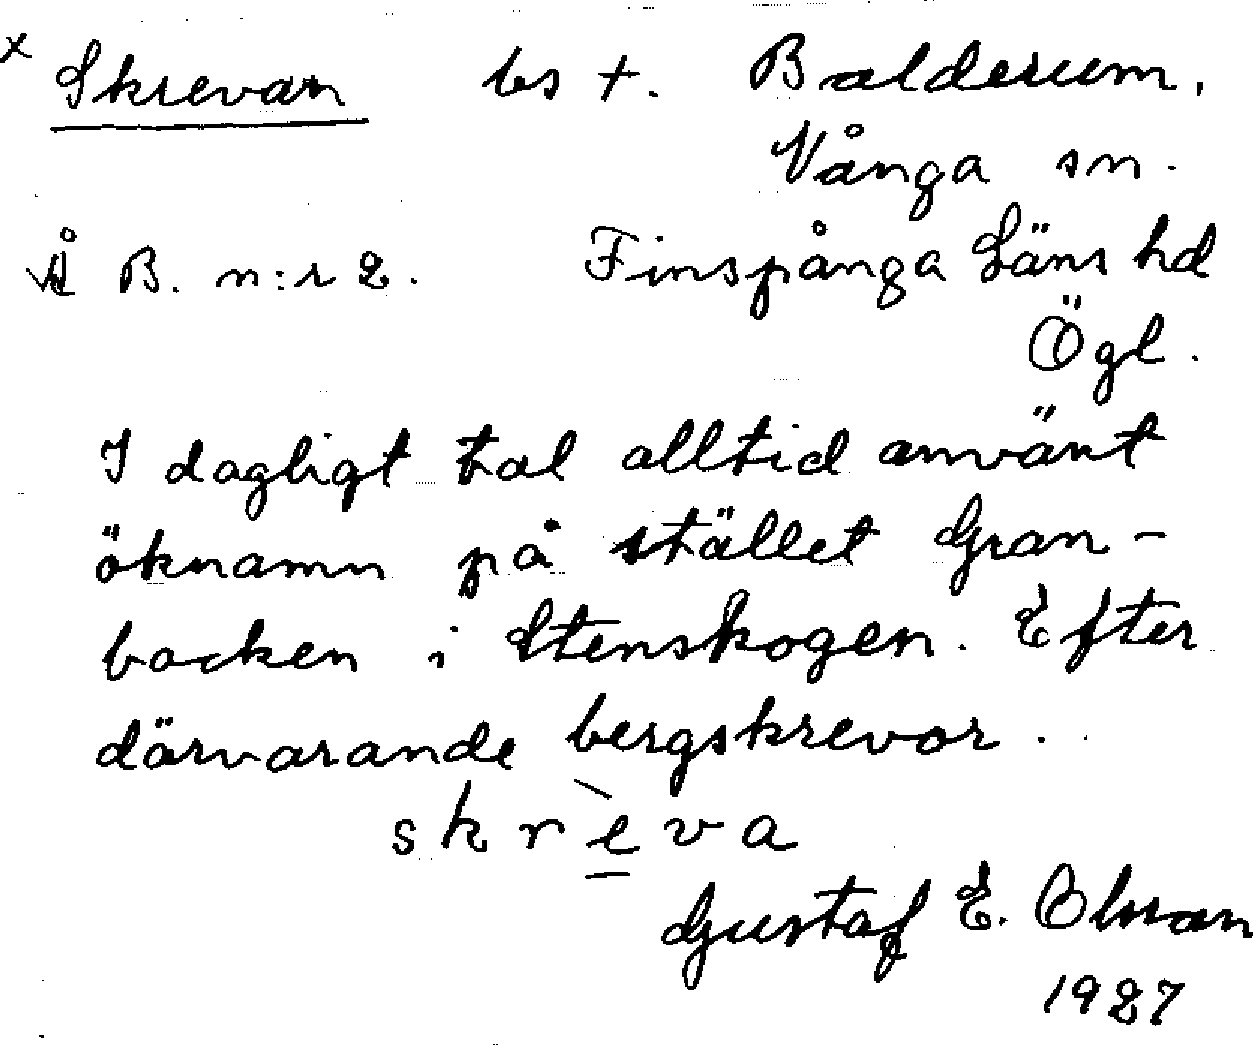 x Skrevan bs t. Balderum,
Vånga sn.
Å B. n:r 2. Finspånga Läns hd
Ögl.
I dagligt tal alltid använt
öknamn på stället Gran-
backen i Stenskogen. Efter
därvarande bergskrevor.
skrèva
Gustaf E. Olsson
1927